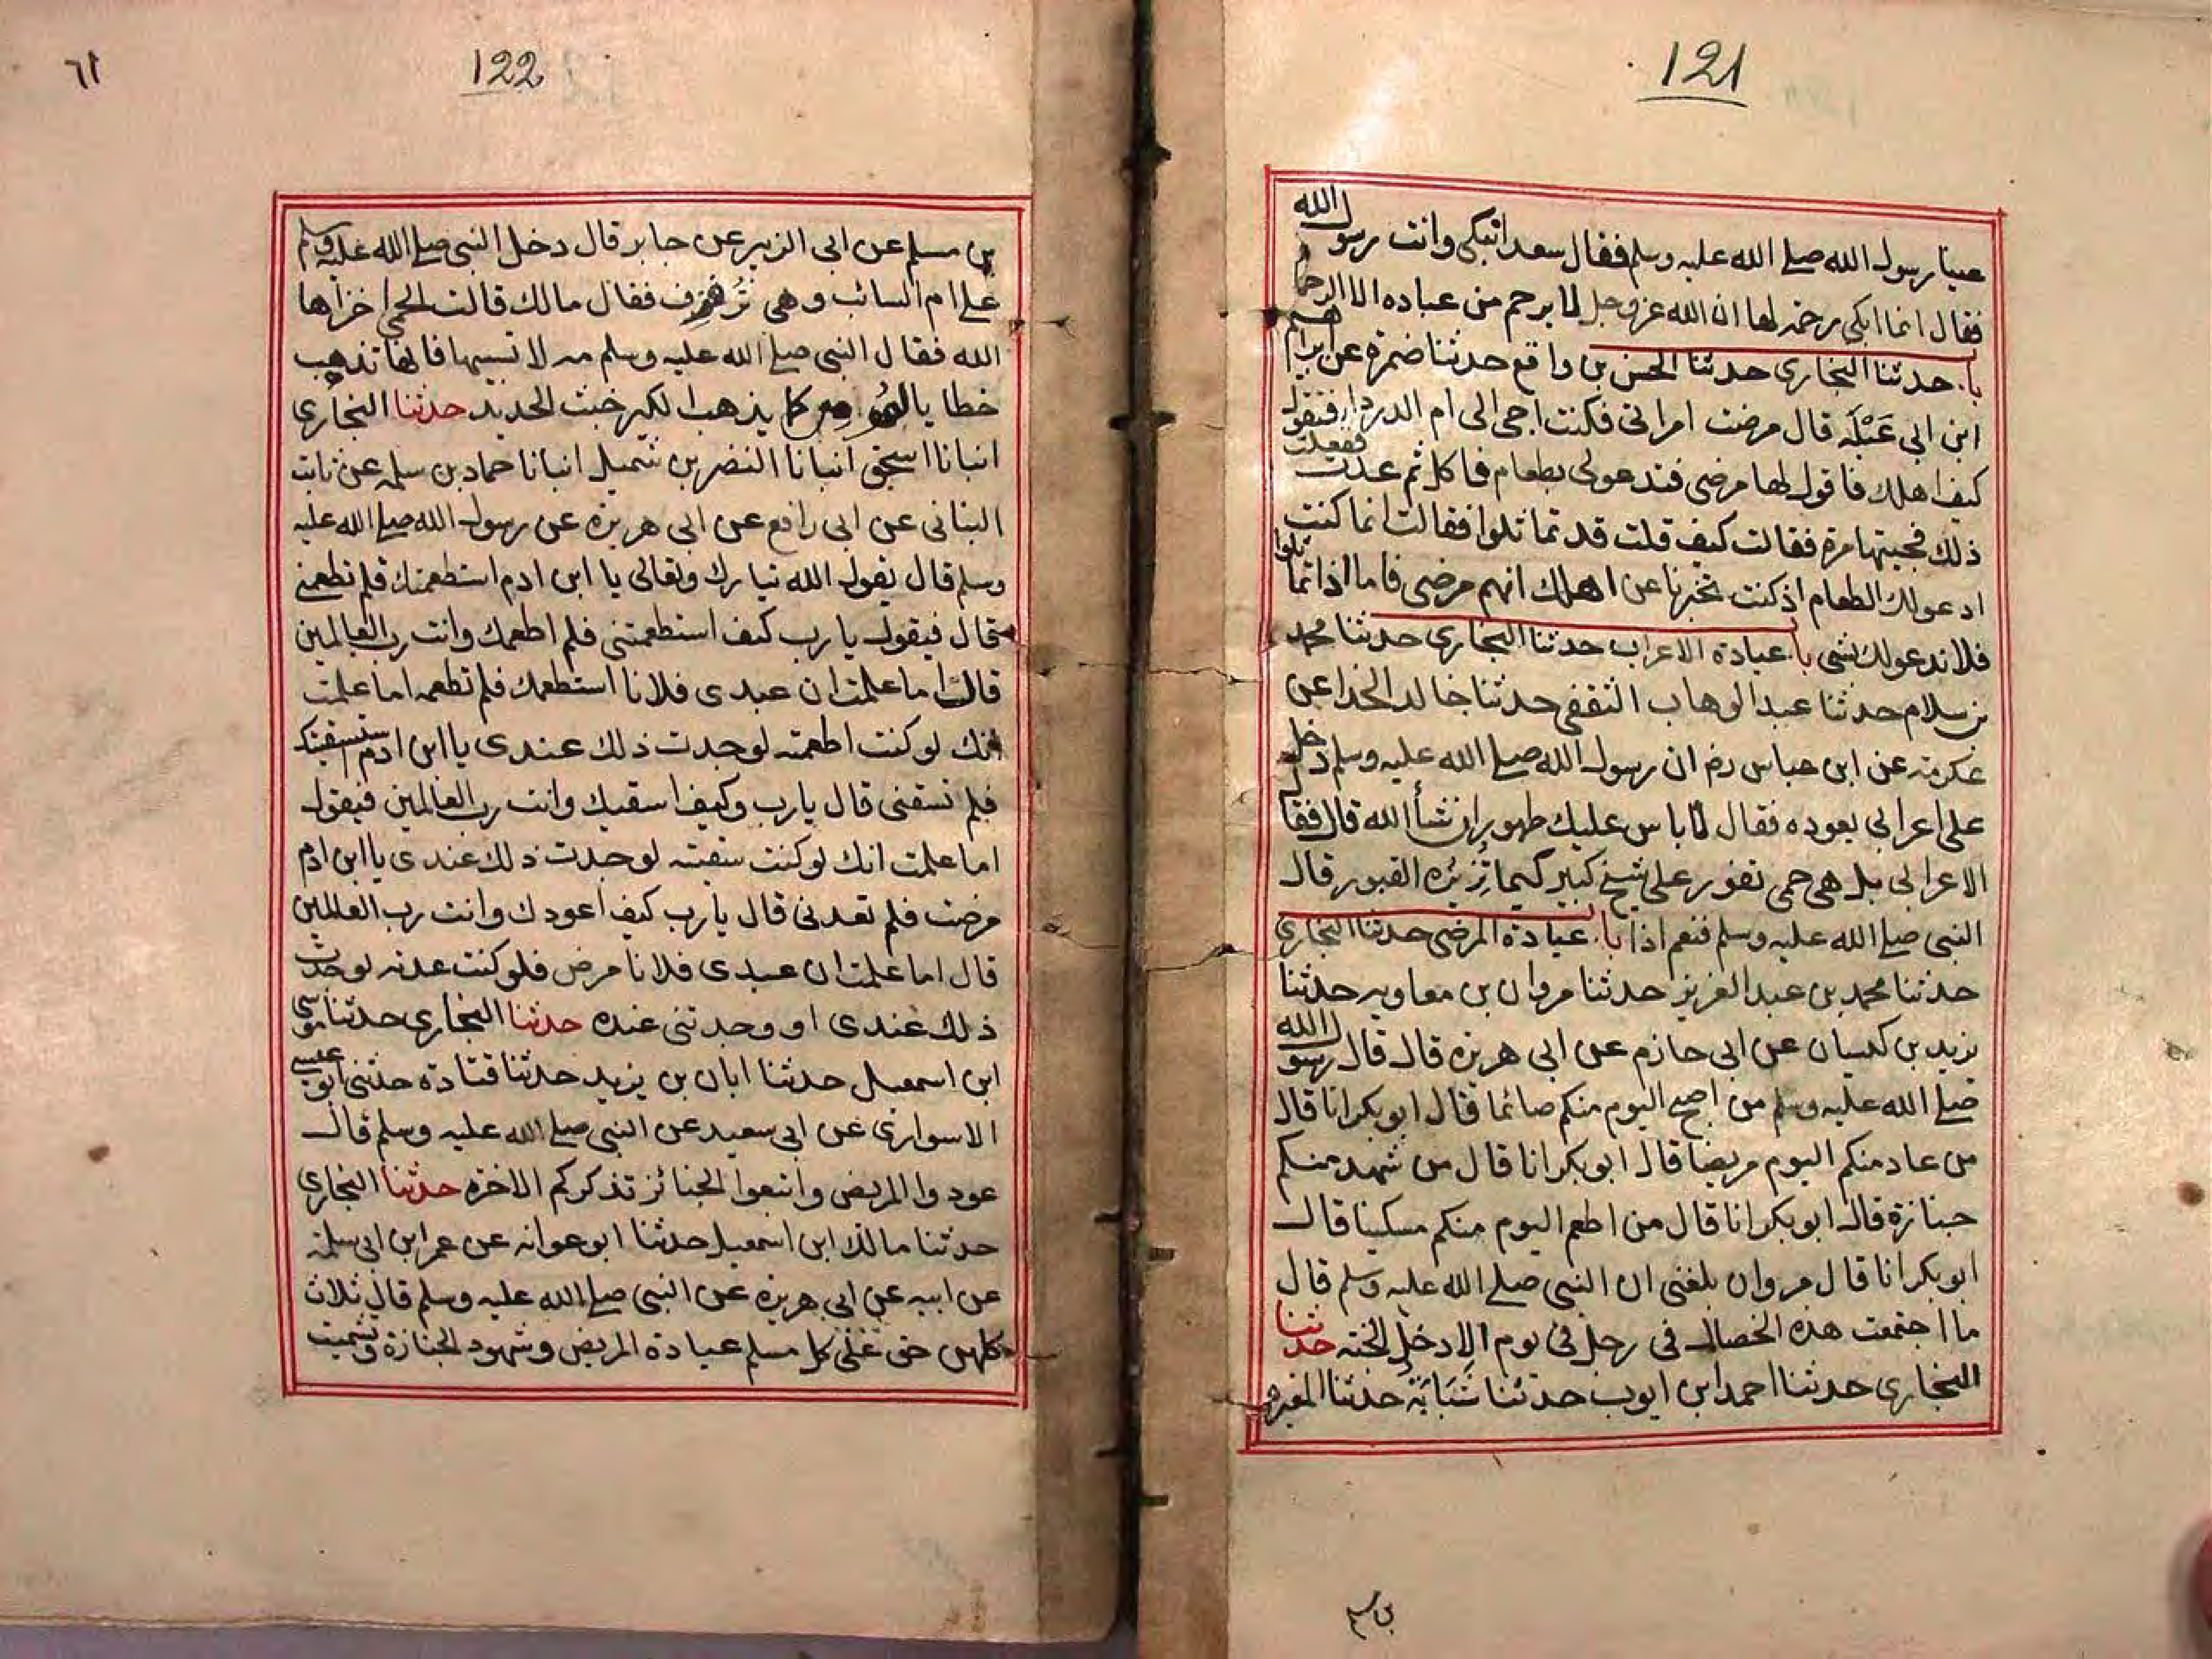 121
عينا رسول الله صلے الله عليه وسلم فقال سعد اتبكى وانت رسول الله
فقال انما ابكى رحمة لها ان الله عز وجل لا يرحم من عباده الا الرحما
با. حدثنا البخارى حدثنا الحسن بن واقع حدثنا ضمرة عن ابراهيم
ابن ابى عَبْلَة قال مرضت امراتى فكنت اجى الى ام الدرداء فتقول
كيف اهلك فاقول لها مرضى فتدعو لى بطعام فاكل ثم عدت ففعلت
ذلك فجيتها مرة فقالت كيف قلت قد تماثلوا فقالت انما كنت
ادعو لك الطعام اذ كنت تخبرنا عن اهلك انهم مرضى فاما اذا تماثلوا
فلا ندعو لك بشى با. عيادة الاعراب حدثنا البخارى حدثنا محمد
بن سلام حدثنا عبد الوهاب الثقفى حدثنا خالد الحذا عن
عكرمة عن ابن عباس رض ان رسول الله صلے الله عليه وسلم دخل
على اعرابى يعوده فقال لا باس عليك طهور ان شاء الله قال فقال
الاعرابى بل هى حمى تفور على شيخ كبير كيما تزيره القبور قال
النبى صلے الله عليه وسلم فنعم اذا با. عيادة المرضى حدثنا البخارى
حدثنا محمد بن عبد العزيز حدثنا مروان بن معاويه حدثنا
يزيد بن كيسان عن ابى حازم عن ابى هريره قال قال رسول الله
صلے الله عليه وسلم من اصبح اليوم منكم صائما قال ابو بكر انا قال
من عاد منكم اليوم مريضا قال ابو بكر انا قال من شهد منكم
جنازة قال ابو بكر انا قال من اطعم اليوم منكم مسكينا قال
ابو بكر انا قال مروان بلغنى ان النبى صلے الله عليه وسلم قال
ما اجتمعت هذه الخصال فى رجل فى يوم الا دخل الجنة حدثنا
البخارى حدثنا احمد ابن ايوب حدثنا شَبَابَة حدثنا المغيره
بن مسلم
٦١
122
بن مسلم عن ابى الزبير عن جابر قال دخل النبى صلے الله عليه وسلم
على ام السائب وهى تزفزف فقال مالك قالت الحمى اخزاها
الله فقال النبى صلے الله عليه وسلم مه لا تسبيها فانها تذهب
خطايا المؤمن كما يذهب الكير خبث الحديد حدثنا البخارى
انبانا اسحق انبانا النضر بن شميل انبانا حماد بن سلمه عن ثابت
البنانى عن ابى رافع عن ابى هريره عن رسول الله صلے الله عليه
وسلم قال يقول الله تبارك وتعالى يا ابن ادم استطعمتك فلم تطعمنے
قال فيقول يا رب كيف استطعمتنى فلم اطعمك وانت رب العالمين
قال اما علمت ان عبدى فلانا استطعمك فلم تطعمه اما علمت
انك لو كنت اطعمته لوجدت ذلك عندى يا ابن ادم استسقيتك
فلم تسقنى قال يا رب وكيف اسقيك وانت رب العالمين فيقول
اما علمت انك لو كنت سقيته لوجدت ذلك عندى يا ابن ادم
مرضت فلم تعدنى قال يا رب كيف اعودك وانت رب العالمين
قال اما علمت ان عبدى فلانا مرض فلو كنت عدته لوجدت
ذلك عندى او وجدتنى عنده حدثنا البخارى حدثنا موسى
ابن اسمعيل حدثنا ابان بن يزيد حدثنا قتادة حدثنى ابو عيسى
الاسوارى عن ابى سعيد عن النبى صلے الله عليه وسلم قال
عودوا المريض واتبعوا الجنائز تذكركم الاخره حدثنا البخارى
حدثنا مالك ابن اسمعيل حدثنا ابو عوانه عن عمر ابن ابى سلمة
عن ابيه عن ابى هريره عن النبى صلے الله عليه وسلم قال ثلاث
كلهن حق على كل مسلم عيادة المريض وشهود الجنازة وتشميت